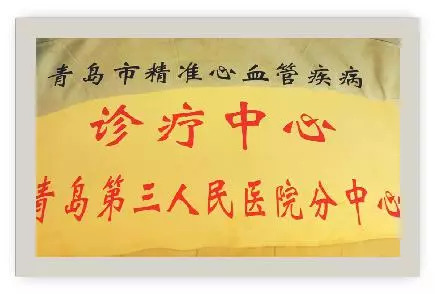 青岛市精准心血管疾病
诊疗中心
青岛第三人民医院分中心